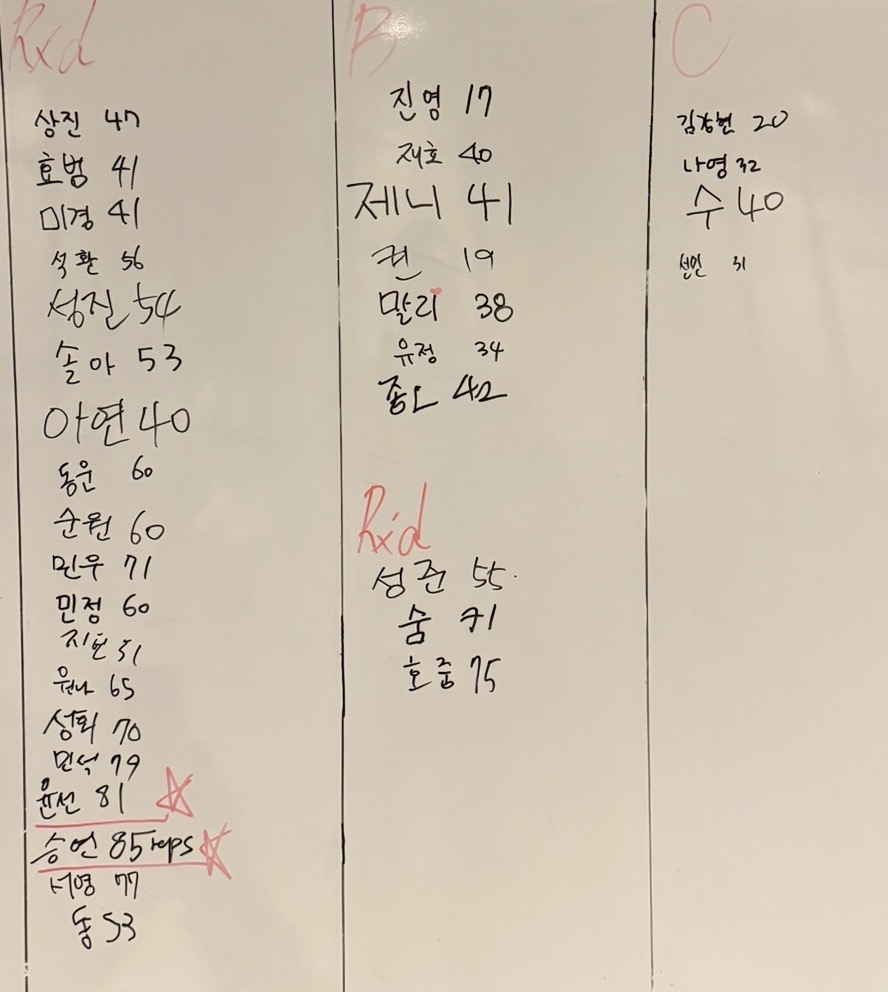 Rxd
상진 47
효범 41
미경 41
석환 56
성진 54
솔아 53
아연 40
동운 60
순원 60
민우 71
민정 60
51
원나 65
성희 70
민석 79
윤선 81
승언 85 reps
서영 77
동 53
B
진영 17
재호 40
제니 41
퀸 19
말리 38
유정 34
42
Rx'd
성준 55
숨 71
호중 75
C
20
나영 32
수 40
선인 31